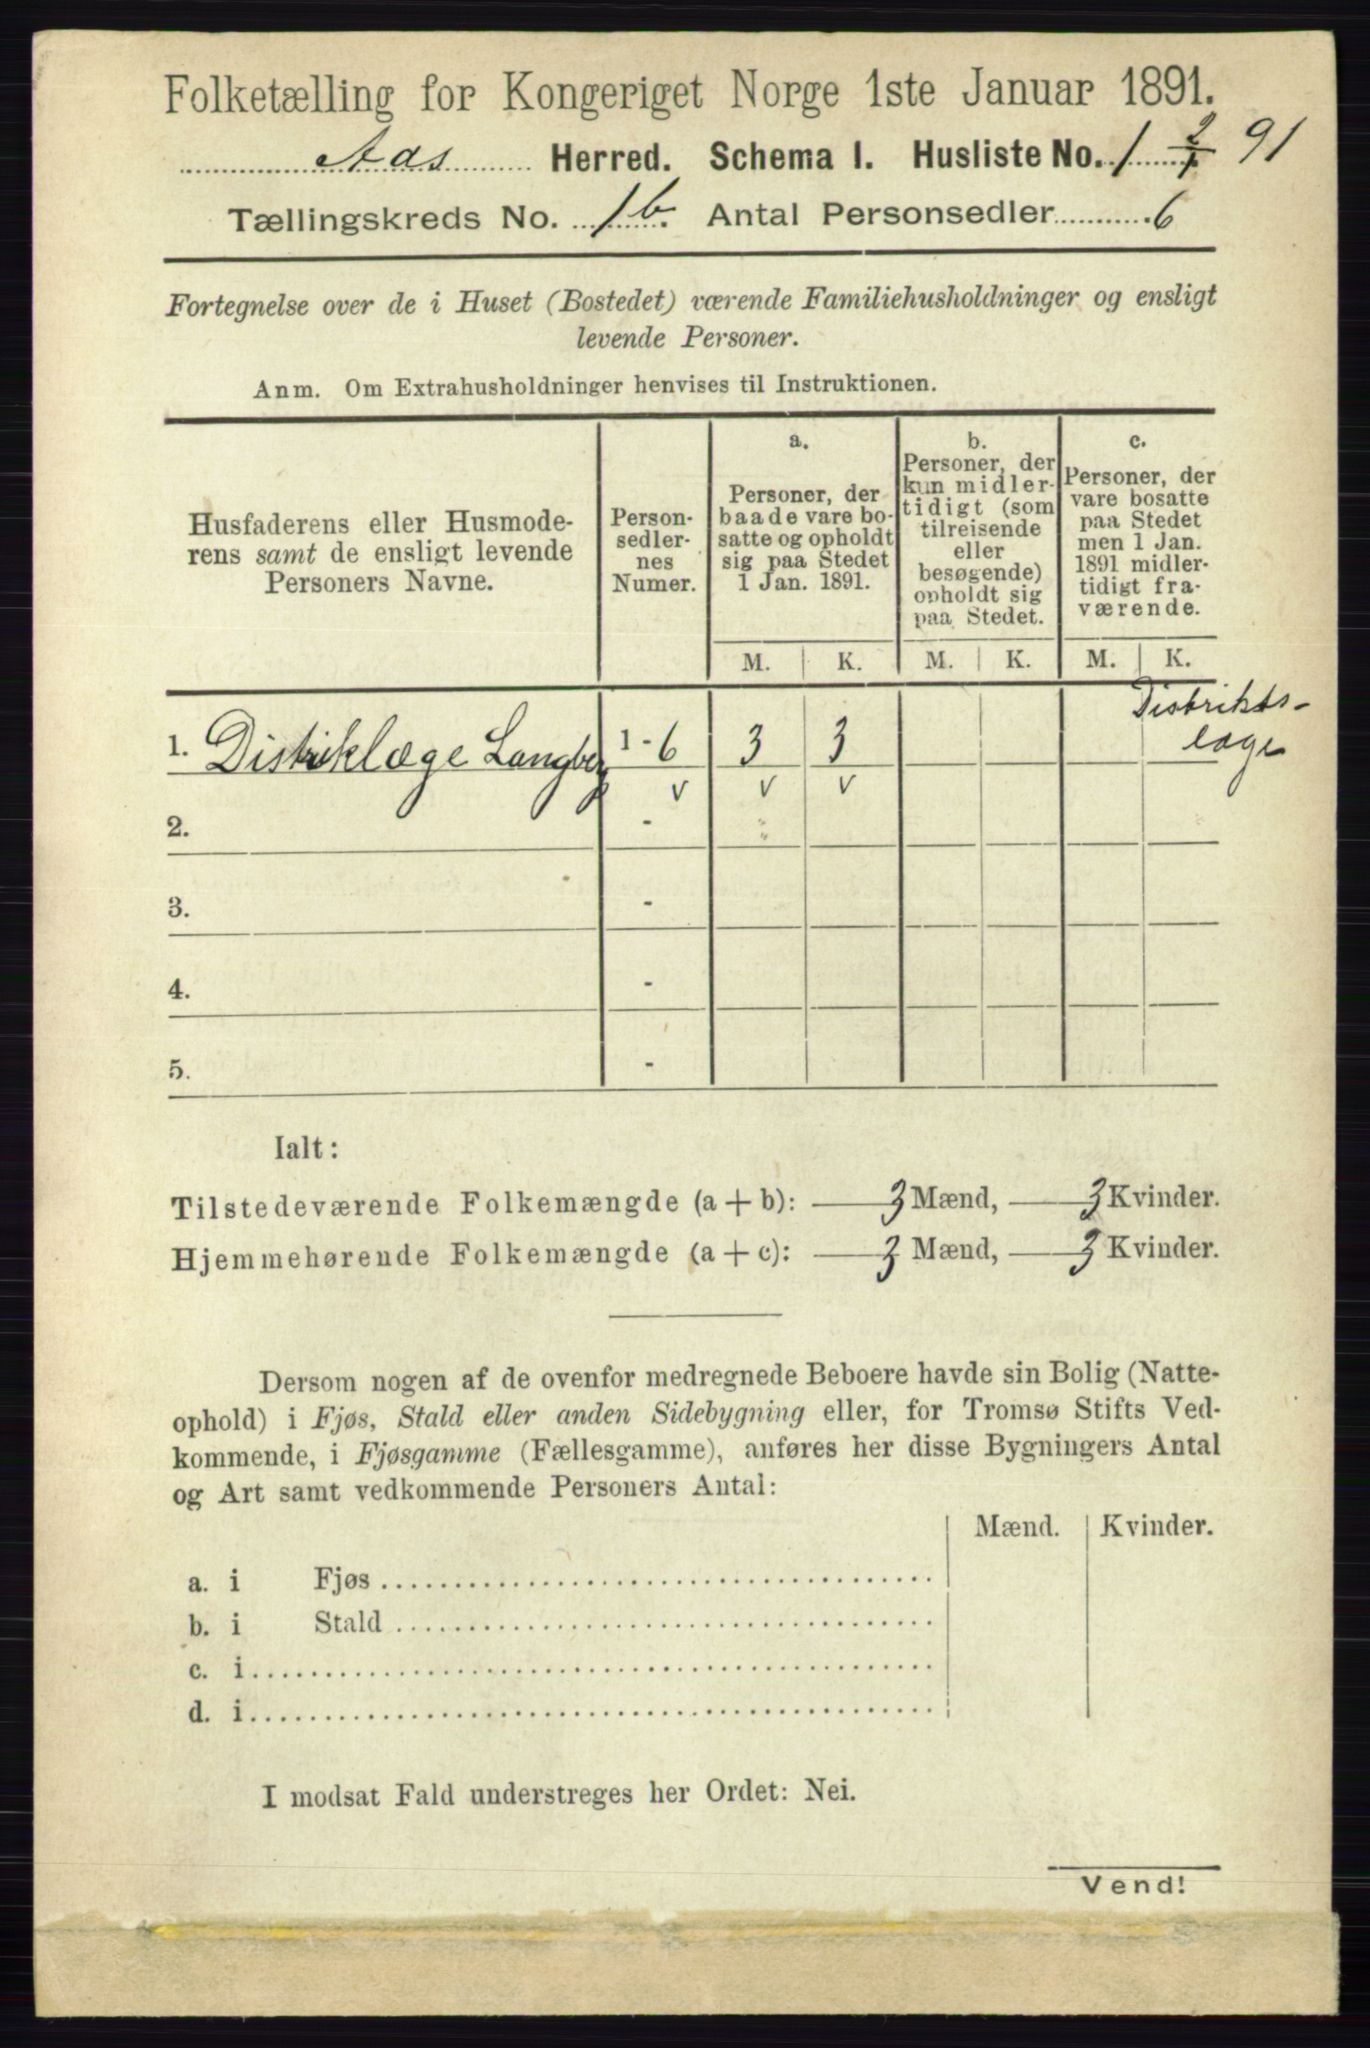 Folketælling for Kongeriget Norge 1ste Januar 1891.
Aas Herred. Schema I. Husliste No. 1 2/1 91
Tællingskreds No. 1b. Antal Personsedler 6
Fortegnelse over de i Huset (Bostedet) værende Familiehusholdninger og ensligt
levende Personer.
Anm. Om Extrahusholdninger henvises til Instruktionen.
Husfaderens eller Husmode-
rens samt de ensligt levende
Personers Navne.
Person-
sedler-
nes
Numer.
a.
Personer, der
baade vare bo-
satte og opholdt
sig paa Stedet
1 Jan. 1891.
b.
Personer, der
kun midler-
tidigt (som
tilreisende
eller
besøgende)
opholdt sig
paa Stedet.
c.
Personer, der
vare bosatte
paa Stedet
men 1 Jan.
1891 midler-
tidigt fra-
værende.
M. K. M. K. M. K.
Distrikts-
læge
1. Distriklæge Langberg 1 - 6 3 3
v v v
2. - "
"
3. -
4. -
5. -
Ialt:
Tilstedeværende Folkemængde (a + b): 3 Mænd, 3 Kvinder.
Hjemmehørende Folkemængde (a + c): 3 Mænd, 3 Kvinder.
Dersom nogen af de ovenfor medregnede Beboere havde sin Bolig (Natte-
ophold) i Fjøs, Stald eller anden Sidebygning eller, for Tromsø Stifts Ved-
kommende, i Fjøsgamme (Fællesgamme), anføres her disse Bygningers Antal
og Art samt vedkommende Personers Antal:
Mænd. Kvinder.
a. i Fjøs
b. i Stald
c. i
d. i
I modsat Fald understreges her Ordet: Nei.
Vend!